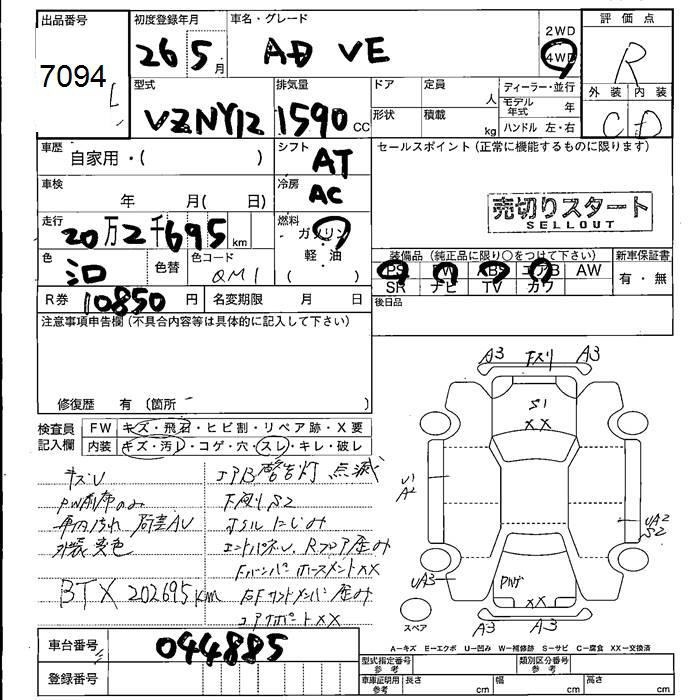 出品番号 初度登録年月 車名・グレード 評価点
7094 26 5月 AD VE 2WD 4WD R
型式 排気量 ドア 定員 人 ディーラー・並行 外装 内装
VZNY12 1590 CC 形状 積載 kg モデル年式 年 C D
ハンドル 左・右
車歴 自家用・( ) シフト AT セールスポイント(正常に機能するものに限ります)
車検 年 月( 日) 冷房 AC
売切りスタート
SELLOUT
走行 20万2千695km 燃料 ガソリン
軽油
( )
色 色替 色コード QM1
装備品(純正品に限り○をつけて下さい) 新車保証書
PS PW ABS エアB AW 有・無
SR ナビ TV カワ
R券 10850円 名変期限 月 日 後日品
注意事項申告欄(不具合内容等は具体的に記入して下さい)
修復歴 有 (箇所
検査員記入欄 FW キズ・飛石・ヒビ割・リペア跡・X要
内装 キズ・汚レ・コゲ・穴・スレ・キレ・破レ
キズU
エアB警告灯 点滅
PW前席のみ
下廻りS2
車内汚れ 荷室AU
JSルにじみ
外装変色
エンドパネU、Rフロア歪み
Fバンパーホースメントxx
BTX 202695km
コアサポートxx
A3 下スリ A3
S1
XX
U1
A2
UA2
S2
UA3
XX
A3 A3
スペア
A−キズ E−エクボ U−凹み W−補修跡 S−サビ C−腐食 XX−交換済
車台番号 044885
型式指定番号 参考 類別区分番号 参考
登録番号
車庫証明用 参考 長さ cm 幅 cm 高さ cm